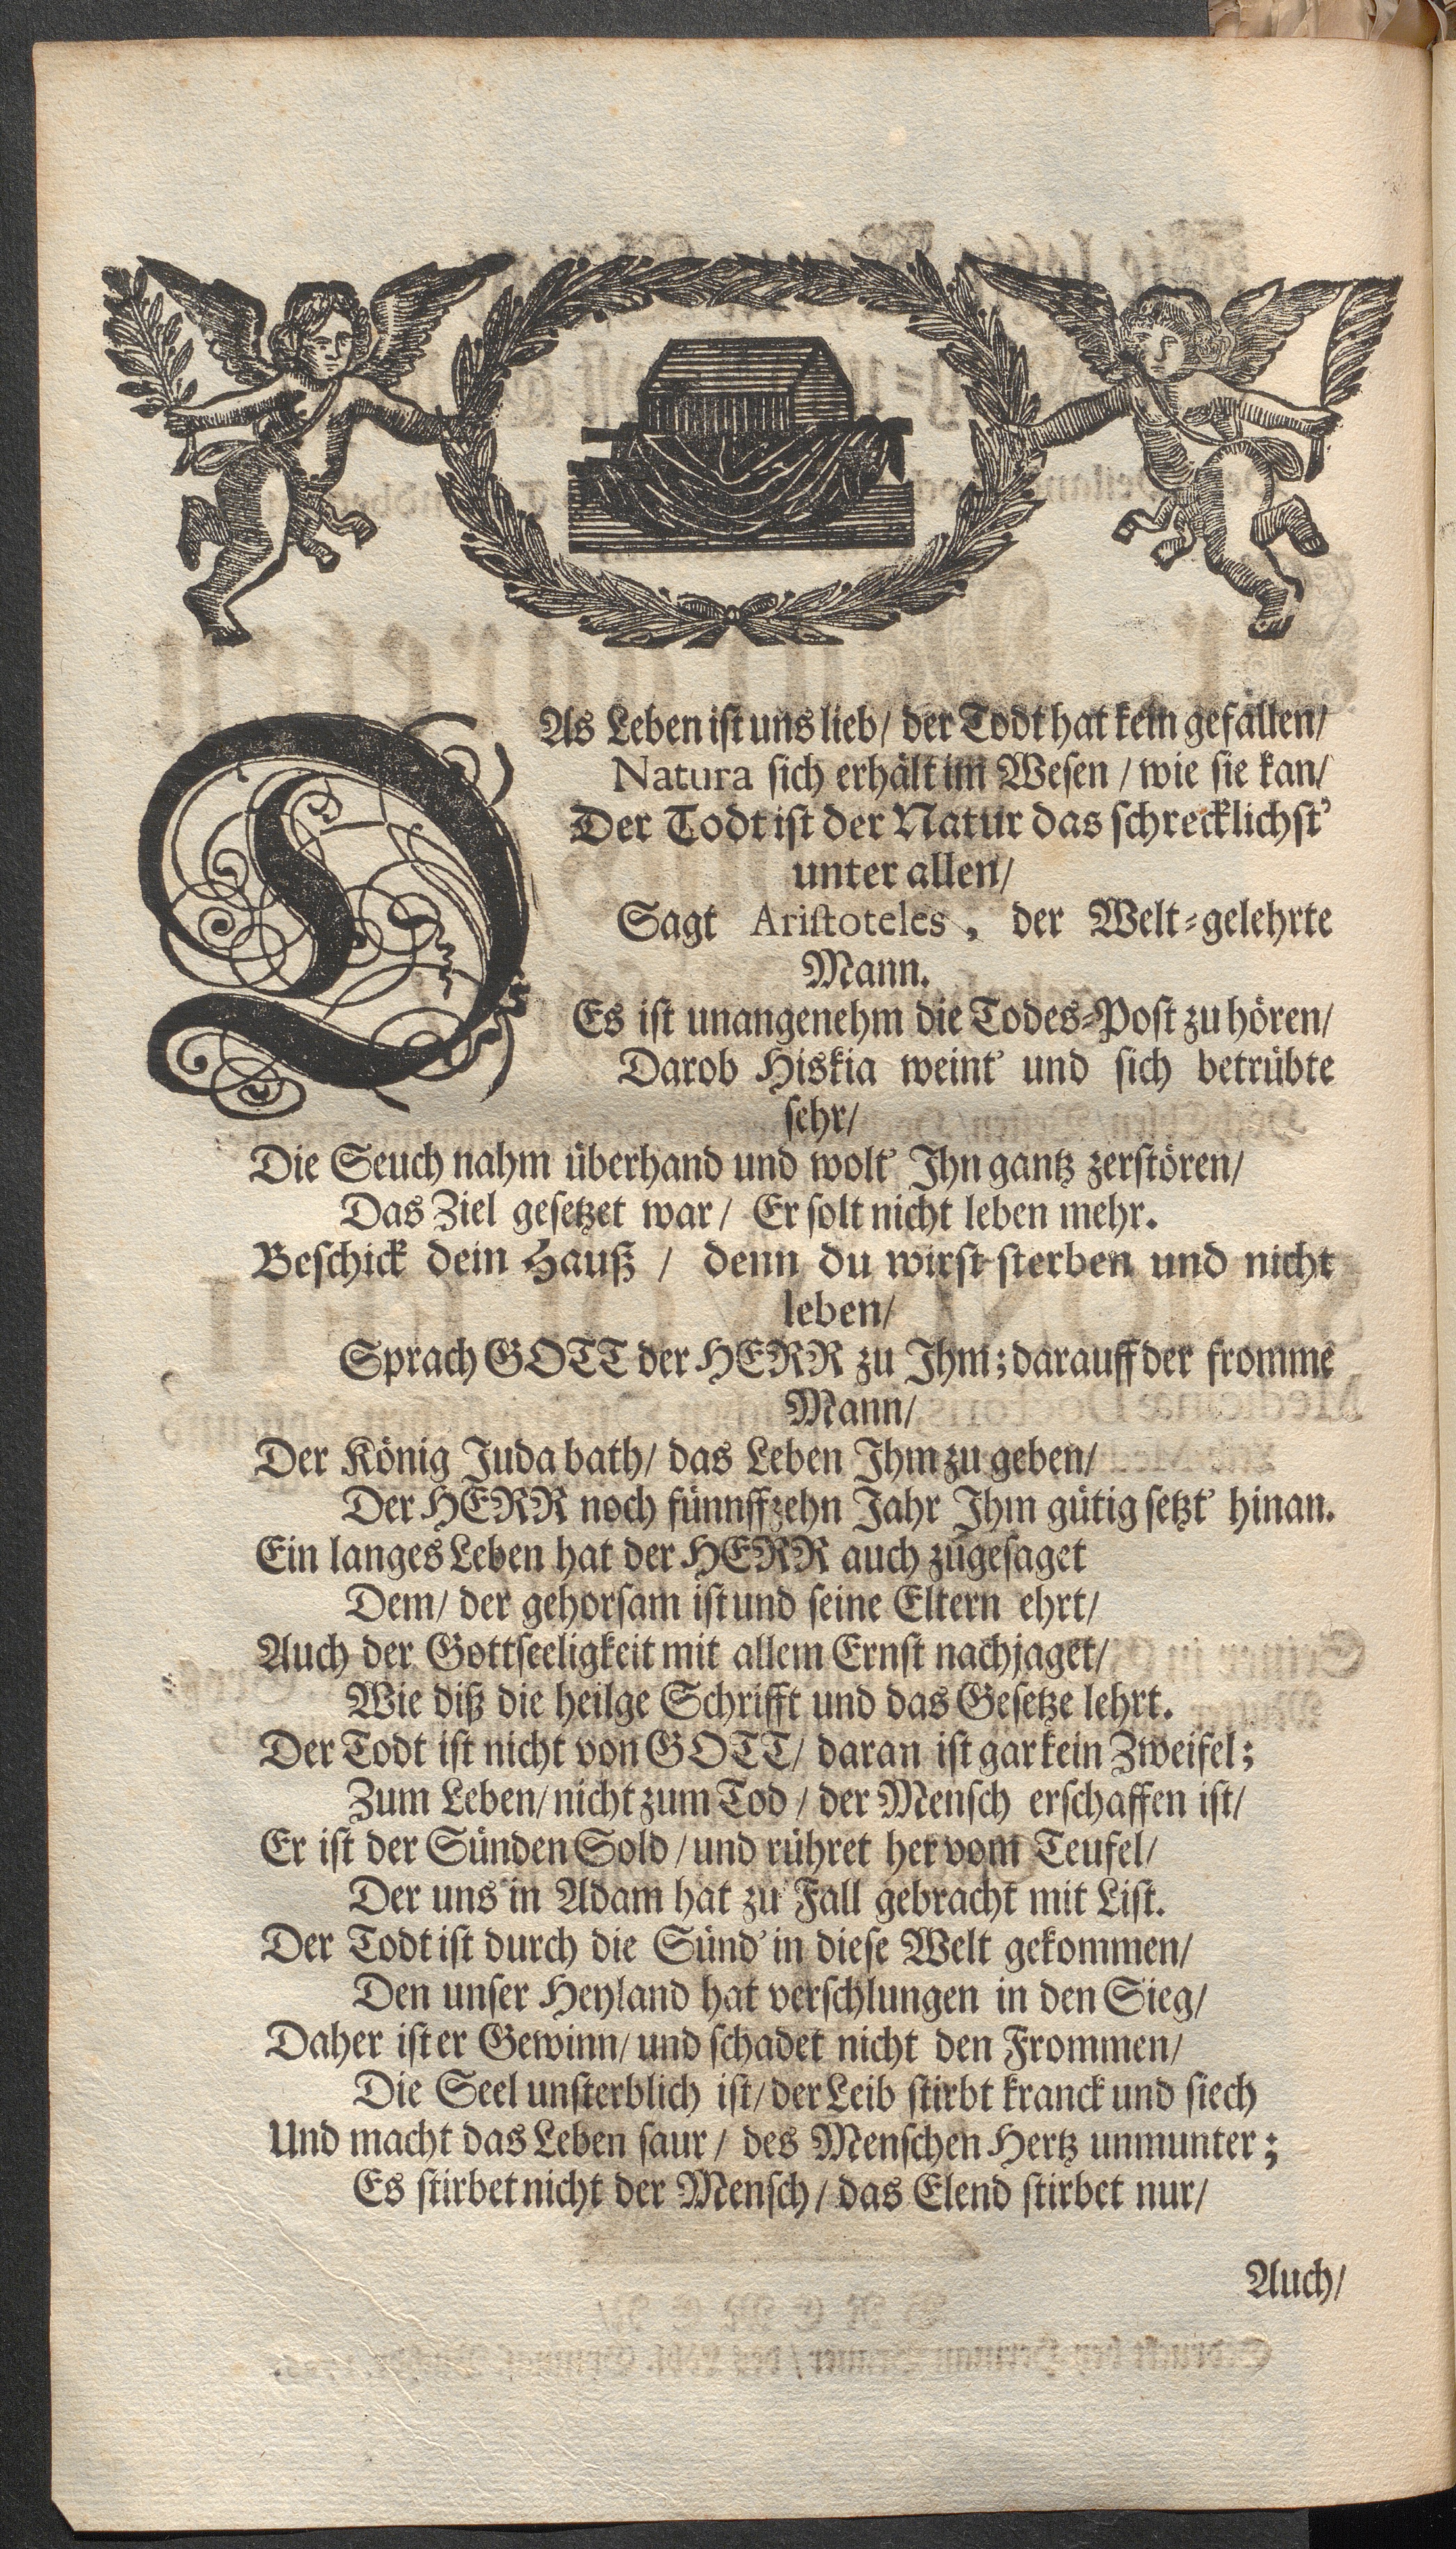 DAs Leben ist uns lieb/ der Todt hat kein gefallen/
Natura sich erhält im Wesen / wie sie kan/
Der Todt ist der Natur das schrecklichst'
unter allen/
Sagt Aristoteles, der Welt-gelehrte
Mann.
Es ist unangenehm die Todes-Post zu hören/
Darob Hiskia weint' und sich betrübte
sehr/
Die Seuch nahm überhand und wolt' Ihn gantz zerstören/
Das Ziel gesetzet war/ Er solt nicht leben mehr.
Beschick dein Hauß / denn du wirst sterben und nicht
leben/
Sprach GOTT der HERR zu Ihm; darauff der fromme
Mann/
Der König Juda bath/ das Leben Ihm zu geben/
Der HERR noch fünnffzehn Jahr Ihm gütig setzt' hinan.
Ein langes Leben hat der HERR auch zugesaget
Dem/ der gehorsam ist und seine Eltern ehrt/
Auch der Gottseeligkeit mit allem Ernst nachjaget/
Wie diß die heilge Schrifft und das Gesetze lehrt.
Der Todt ist nicht von GOTT/ daran ist gar kein Zweifel;
Zum Leben/ nicht zum Tod / der Mensch erschaffen ist/
Er ist der Sünden Sold / und rühret her vom Teufel/
Der uns in Adam hat zu Fall gebracht mit List.
Der Todt ist durch die Sünd' in diese Welt gekommen/
Den unser Heyland hat verschlungen in den Sieg/
Daher ist er Gewinn/ und schadet nicht den Frommen/
Die Seel unsterblich ist/ der Leib stirbt kranck und siech
Und macht das Leben saur / des Menschen Hertz unmunter;
Es stirbet nicht der Mensch / das Elend stirbet nur/
Auch/